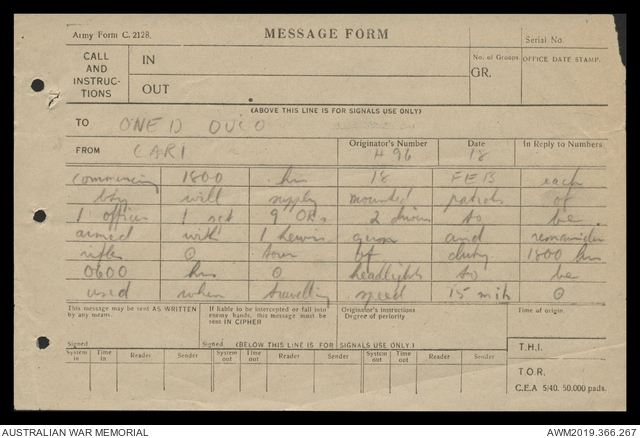 Army Form C. 2128.
MESSAGE FORM
Serial No.
CALL AND INSTRUC- TIONS
IN
OUT
No. of Groups
GR.
OFFICE DATE STAMP.
(ABOVE THIS LINE IS FOR SIGNALS USE ONLY)
TO ONE D
FROM CARI
Originator's Number H 96
Date 18
In Reply to Numbers
commencing 1800 hrs 18 FEB each
bty will supply mounted patrols of
1 officer 1 sgt 9 ORs 2 drivers to be
armed with 1 Lewis gun and remainder
rifles O tour of duty 1800 hrs
0600 hrs O headlights to be
used when travelling speed 15 mih O
This message may be sent AS WRITTEN by any means.
If liable to be intercepted or fall into enemy hands, this message must be sent IN CIPHER
Originator's instructions Degree of periority
Time of origin.
Signed
Signed
(BELOW THIS LINE IS FOR SIGNALS USE ONLY)
System in
Time in
Reader
Sender
System out
Time out
Reader
Sender
System out
Time out
Reader
Sender
T.H.I.
T.O.R.
C.E.A 5/40. 50.000 pads.
AUSTRALIAN WAR MEMORIAL
AWM2019.366.267